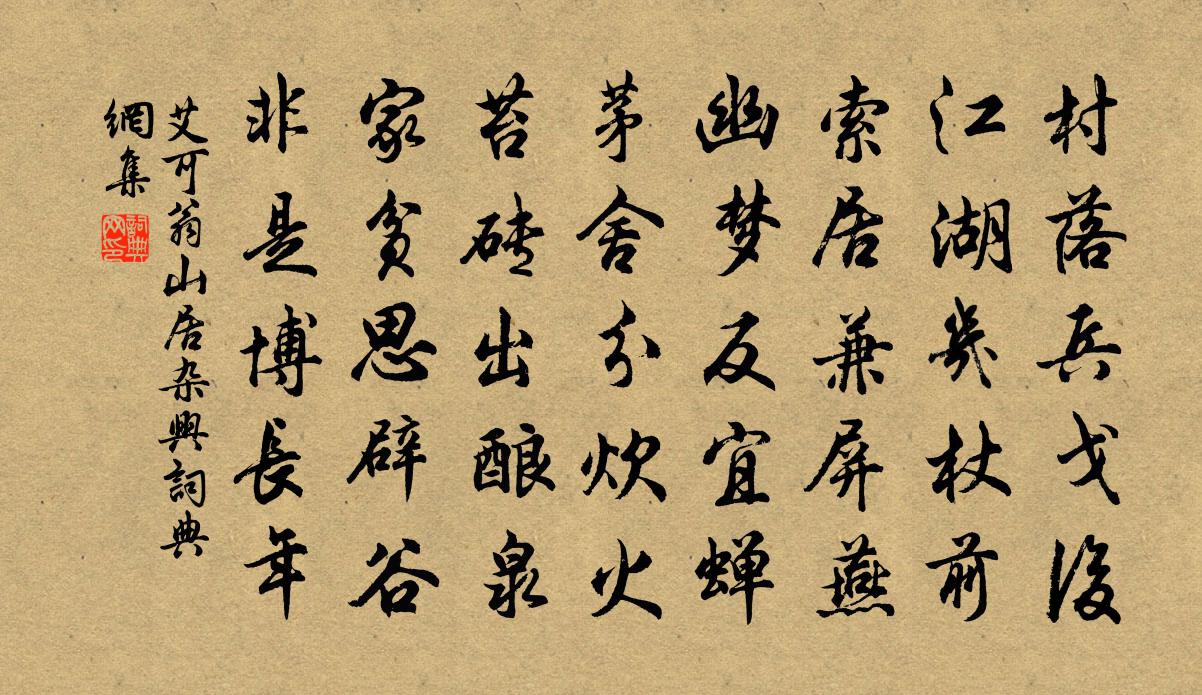 村落兵戈後
江湖幾杖前
索居兼屏燕
幽梦反宜蝉
茅舍分炊火
苔砖出酿泉
家貧思辟谷
非是博長年
艾可翁山居杂興詞典
網集
詞典网印